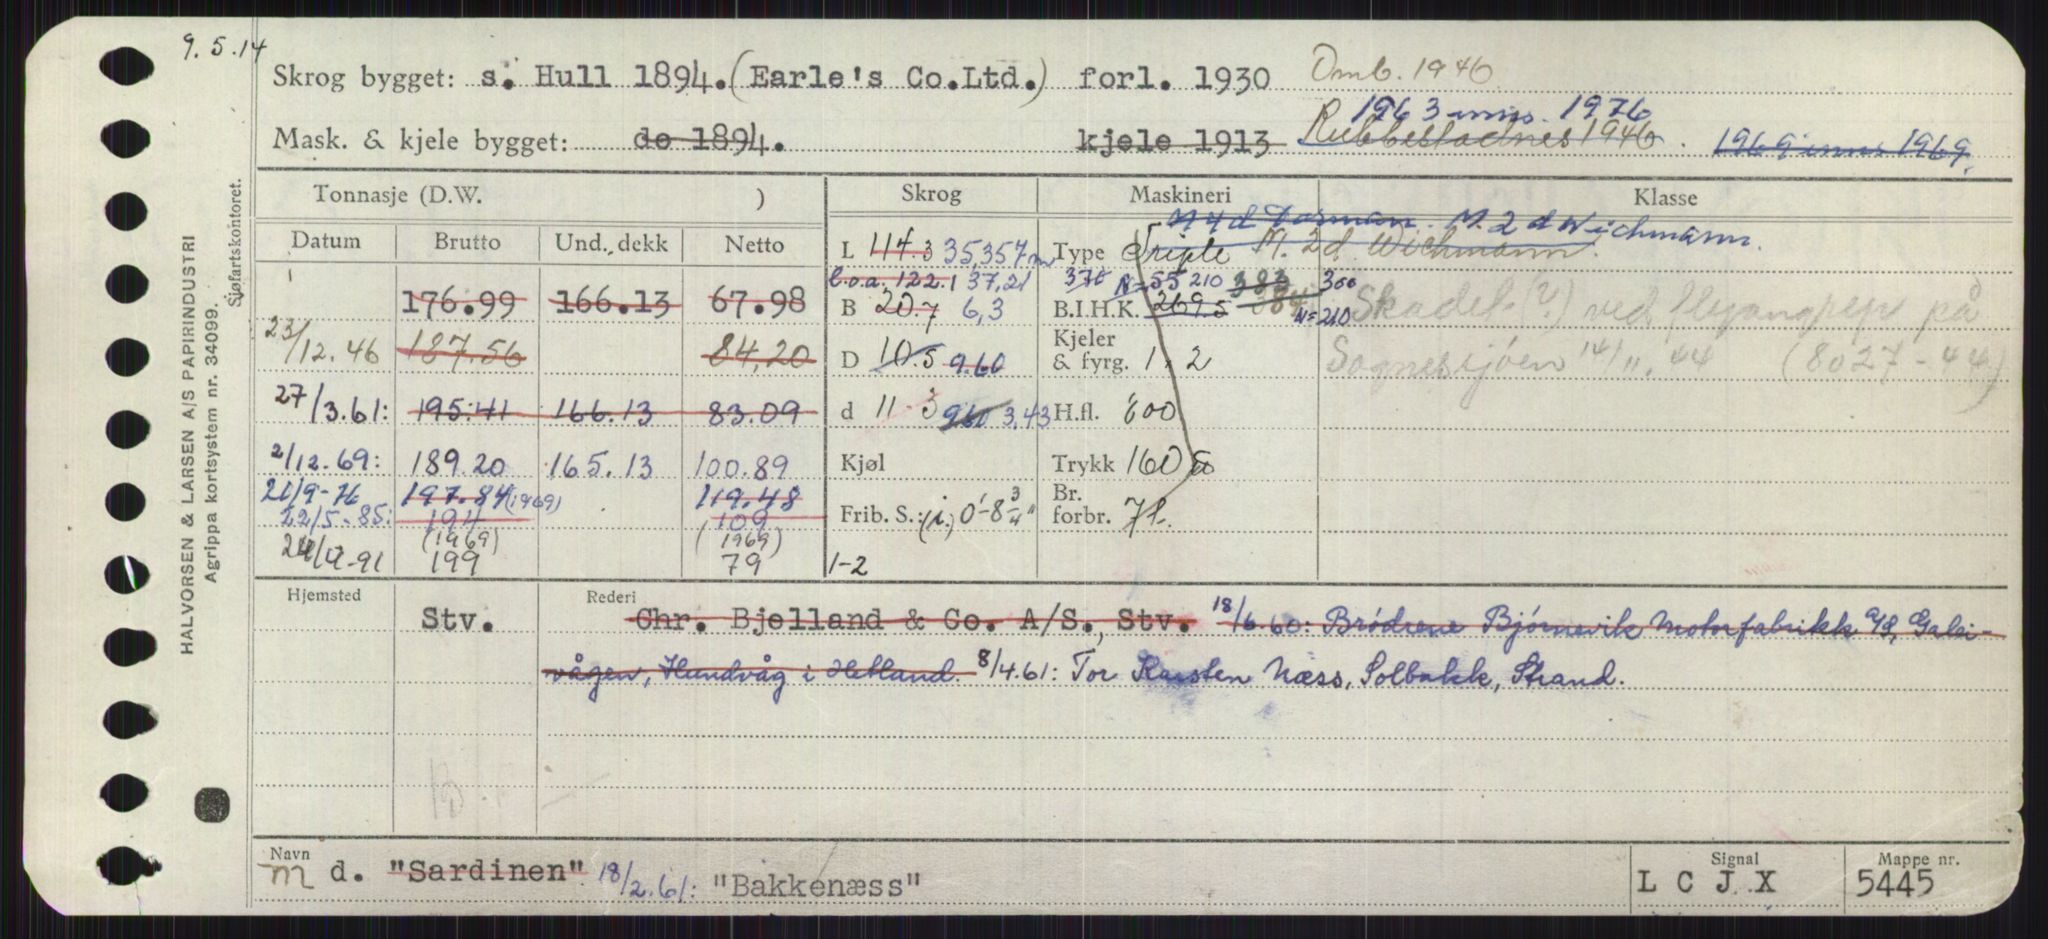 9.5.14
Skrog bygget: s. Hull 1894. (Earle's Co.Ltd.) forl. 1930 Omb. 1946
1963 inns. 1976
Mask. & kjele bygget: do 1894. kjele 1913 Rubbestadnes 1946. 1969 inns 1969.
Tonnasje (D.W. ) Skrog Maskineri Klasse
M. 2 d Wichmann.
Datum Brutto Und. dekk Netto
L 114.3 35,357 m Type Triple M. 2 d. Wichmann.
l.o.a. 122.1 37,21 370 N=55 210 383 300
176.99 166.13 67.98 B 20.7 6,3 B.I.H.K. 269.5 384 N=210
Skadet (?) ved flyangrep på
23/12.46 187.56 84,20 D 10.5 9.60 Kjeler & fyrg. 1, 2
Sognesjöen 14/11.44 (8027-44)
27/3.61: 195.41 166.13 83.09 d 11 3 960 3,43 H.fl. 600
2/12.69: 189.20 165.13 100.89 Kjøl Trykk 160
21/9-76 197.84 (1969) 119.48
22/5-85: 194 109 Frib. S.: (i.) 0'-8 3/4" Br. forbr. 7 t.
(1969) (1969)
-91 199 79 1-2
Hjemsted Rederi
Stv. Chr. Bjelland & Co. A/S., Stv. 18/6.60: Brødrene Bjørnevik Motorfabrikk A/S, Galei-
vågen, Hundvåg i Hetland. 8/4.61: Tor Karsten Næss, Solbakk, Strand.
Navn Signal Mappe nr.
m d. "Sardinen" 18/2.61: "Bakkenæss" L C J X 5445
HALVORSEN & LARSEN A/S PAPIRINDUSTRI
Agrippa kortsystem nr. 34099.
Sjøfartskontoret.